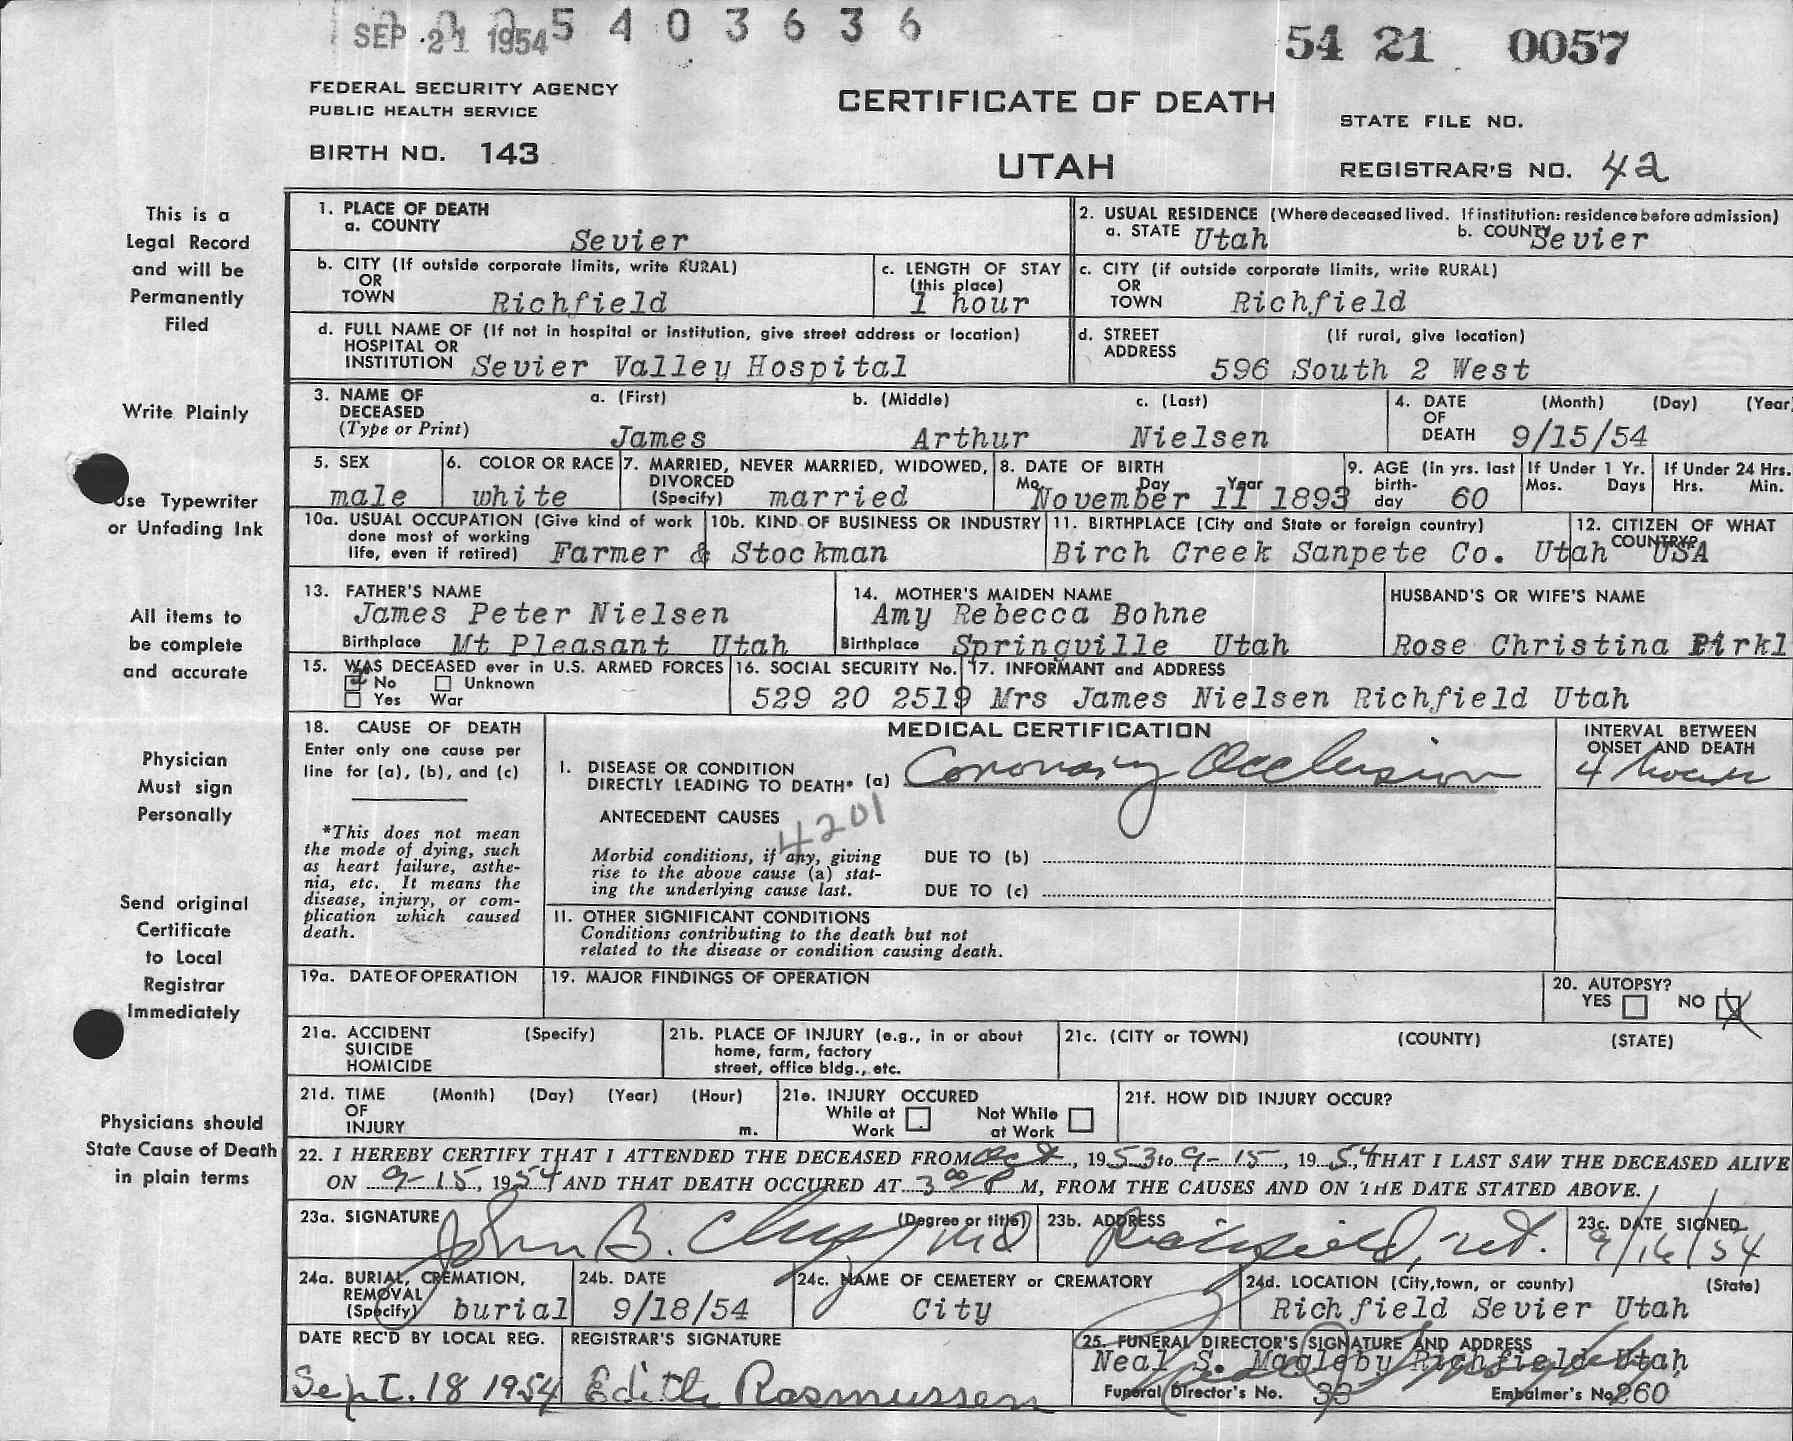 SEP 21 1954 5 4 0 3 6 3 6
54 21 0057
FEDERAL SECURITY AGENCY
PUBLIC HEALTH SERVICE
BIRTH NO. 143
CERTIFICATE OF DEATH
UTAH
STATE FILE NO.
REGISTRAR'S NO. 42
This is a
Legal Record
and will be
Permanently
Filed
Write Plainly
Use Typewriter
or Unfading Ink
All items to
be complete
and accurate
Physician
Must sign
Personally
Send original
Certificate
to Local
Registrar
Immediately
Physicians should
State Cause of Death
in plain terms
1. PLACE OF DEATH
a. COUNTY
Sevier
2. USUAL RESIDENCE (Where deceased lived. If institution: residence before admission)
a. STATE Utah b. COUNTY Sevier
b. CITY (If outside corporate limits, write RURAL)
OR
TOWN Richfield
c. LENGTH OF STAY
(this place)
1 hour
c. CITY (if outside corporate limits, write RURAL)
OR
TOWN Richfield
d. FULL NAME OF (If not in hospital or institution, give street address or location)
HOSPITAL OR
INSTITUTION Sevier Valley Hospital
d. STREET (If rural, give location)
ADDRESS
596 South 2 West
3. NAME OF a. (First) b. (Middle) c. (Last)
DECEASED
(Type or Print) James Arthur Nielsen
4. DATE (Month) (Day) (Year)
OF
DEATH 9/15/54
5. SEX
male
6. COLOR OR RACE
white
7. MARRIED, NEVER MARRIED, WIDOWED,
DIVORCED
(Specify) married
8. DATE OF BIRTH
Mo. Day Year
November 11 1893
9. AGE (In yrs. last
birth-
day 60
If Under 1 Yr.
Mos. Days
If Under 24 Hrs.
Hrs. Min.
10a. USUAL OCCUPATION (Give kind of work
done most of working
life, even if retired) Farmer & Stockman
10b. KIND OF BUSINESS OR INDUSTRY
11. BIRTHPLACE (City and State or foreign country)
Birch Creek Sanpete Co. Utah
12. CITIZEN OF WHAT
COUNTRY?
USA
13. FATHER'S NAME
James Peter Nielsen
Birthplace Mt Pleasant Utah
14. MOTHER'S MAIDEN NAME
Amy Rebecca Bohne
Birthplace Springville Utah
HUSBAND'S OR WIFE'S NAME
Rose Christina Pirkl
15. WAS DECEASED ever in U.S. ARMED FORCES
No Unknown
Yes War
16. SOCIAL SECURITY No.
529 20 2519
17. INFORMANT and ADDRESS
Mrs James Nielsen Richfield Utah
18. CAUSE OF DEATH
Enter only one cause per
line for (a), (b), and (c)
*This does not mean
the mode of dying, such
as heart failure, asthe-
nia, etc. It means the
disease, injury, or com-
plication which caused
death.
MEDICAL CERTIFICATION
I. DISEASE OR CONDITION
DIRECTLY LEADING TO DEATH* (a) Coronary Occlusion
ANTECEDENT CAUSES
4201
Morbid conditions, if any, giving
rise to the above cause (a) stat-
ing the underlying cause last.
DUE TO (b)
DUE TO (c)
II. OTHER SIGNIFICANT CONDITIONS
Conditions contributing to the death but not
related to the disease or condition causing death.
INTERVAL BETWEEN
ONSET AND DEATH
4 hours
19a. DATE OF OPERATION
19. MAJOR FINDINGS OF OPERATION
20. AUTOPSY?
YES NO X
21a. ACCIDENT (Specify)
SUICIDE
HOMICIDE
21b. PLACE OF INJURY (e.g., in or about
home, farm, factory
street, office bldg., etc.
21c. (CITY or TOWN) (COUNTY) (STATE)
21d. TIME (Month) (Day) (Year) (Hour)
OF
INJURY m.
21e. INJURY OCCURED
While at Work Not While at Work
21f. HOW DID INJURY OCCUR?
22. I HEREBY CERTIFY THAT I ATTENDED THE DECEASED FROM Oct, 1953 to 9-15, 1954, THAT I LAST SAW THE DECEASED ALIVE
ON 9-15, 1954 AND THAT DEATH OCCURED AT 3 00 P M, FROM THE CAUSES AND ON THE DATE STATED ABOVE.
23a. SIGNATURE (Degree or title)
John B. MD
23b. ADDRESS
Richfield, Ut.
23c. DATE SIGNED
9/16/54
24a. BURIAL, CREMATION,
REMOVAL
(Specify) burial
24b. DATE
9/18/54
24c. NAME OF CEMETERY or CREMATORY
City
24d. LOCATION (City, town, or county) (State)
Richfield Sevier Utah
DATE REC'D BY LOCAL REG.
Sept. 18 1954
REGISTRAR'S SIGNATURE
Edith Rasmussen
25. FUNERAL DIRECTOR'S SIGNATURE AND ADDRESS
Neal S. Magleby Richfield Utah
Funeral Director's No. 33 Embalmer's No. 260